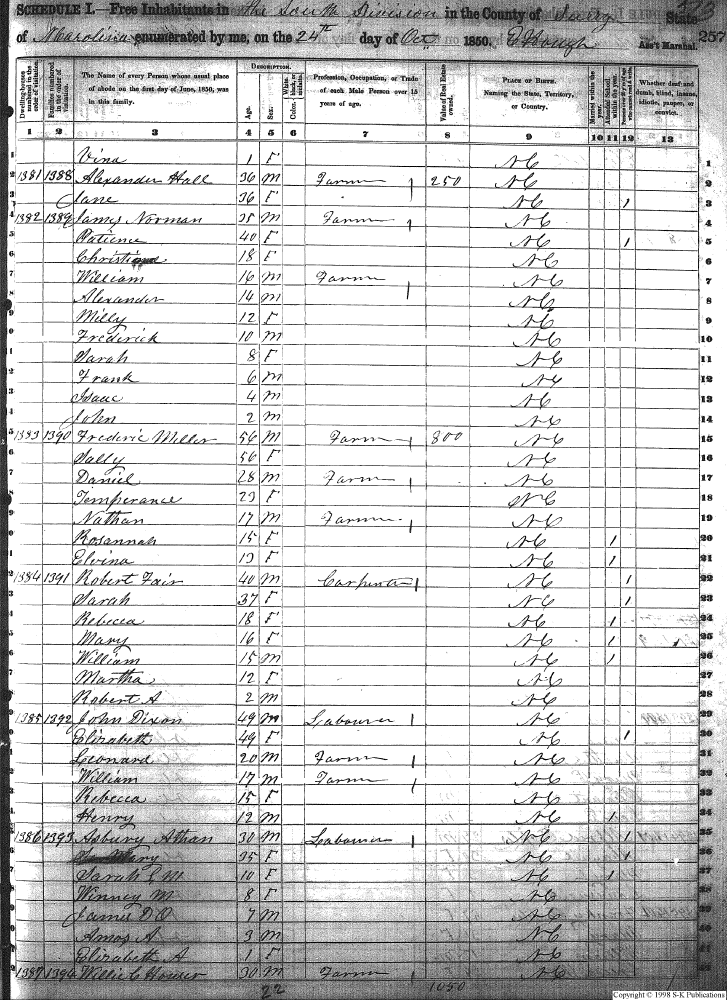 SCHEDULE I.—Free Inhabitants in the South Division in the County of Surry State
of N Carolina enumerated by me, on the 24th day of Oct 1850. E Hough Ass't Marshal. 257
DESCRIPTION.
Dwelling-houses numbered in the order of visitation.
Families numbered in the order of visitation.
The Name of every Person whose usual place of abode on the first day of June, 1850, was in this family.
Age.
Sex.
Color, White, black, or mulatto.
Profession, Occupation, or Trade of each Male Person over 15 years of age.
Value of Real Estate owned.
PLACE OF BIRTH. Naming the State, Territory, or Country.
Married within the year.
Attended School within the year.
Whether deaf and dumb, blind, insane, idiotic, pauper, or convict.
1 2 3 4 5 6 7 8 9 10 11 12 13
1 Vina 1 F NC 1
2 1381 1388 Alexander Hall 36 M Farmer 250 NC 2
3 Jane 36 F NC / 3
4 1382 1389 James Norman 35 M Farmer NC 4
5 Patience 40 F NC / 5
6 18 F NC 6
7 William 16 M Farmer NC 7
8 Alexander 14 M NC 8
9 Milly 12 F NC 9
10 Frederick 10 M NC 10
11 Sarah 8 F NC 11
12 Frank 6 M NC 12
13 Isaac 4 M NC 13
14 John 2 M NC 14
15 1383 1390 Frederic Miller 56 M Farmer 800 NC 15
16 Sally 56 F NC 16
17 Daniel 28 M Farmer NC 17
18 Temperance 23 F NC 18
19 Nathan 17 M Farmer NC 19
20 Rosannah 15 F NC / 20
21 Elvina 13 F NC / 21
22 1384 1391 Robert Fair 40 M Carpenter NC / 22
23 Sarah 37 F NC / 23
24 Rebecca 18 F NC / 24
25 Mary 16 F NC / 25
26 William 15 M NC / 26
27 Martha 12 F NC 27
28 Robert A 2 M NC 28
29 1385 1392 John Dixon 49 M Labourer NC 29
30 Elizabeth 49 F NC / 30
31 Leonard 20 M Farmer NC 31
32 William 17 M Farmer NC 32
33 Rebecca 15 F NC 33
34 Henry 12 M NC / 34
35 1386 1393 Asbury Athan 30 M Labourer NC / 35
36 Mary 35 F NC / 36
37 Sarah E M 10 F NC / 37
38 Winney M 8 F NC 38
39 James D O 7 M NC 39
40 Amos A 3 M NC 40
41 Elizabeth A 1 F NC 41
42 1387 1394 Willie C Houser 30 M Farmer NC 42
22 1050
Copyright © 1998 S-K Publications